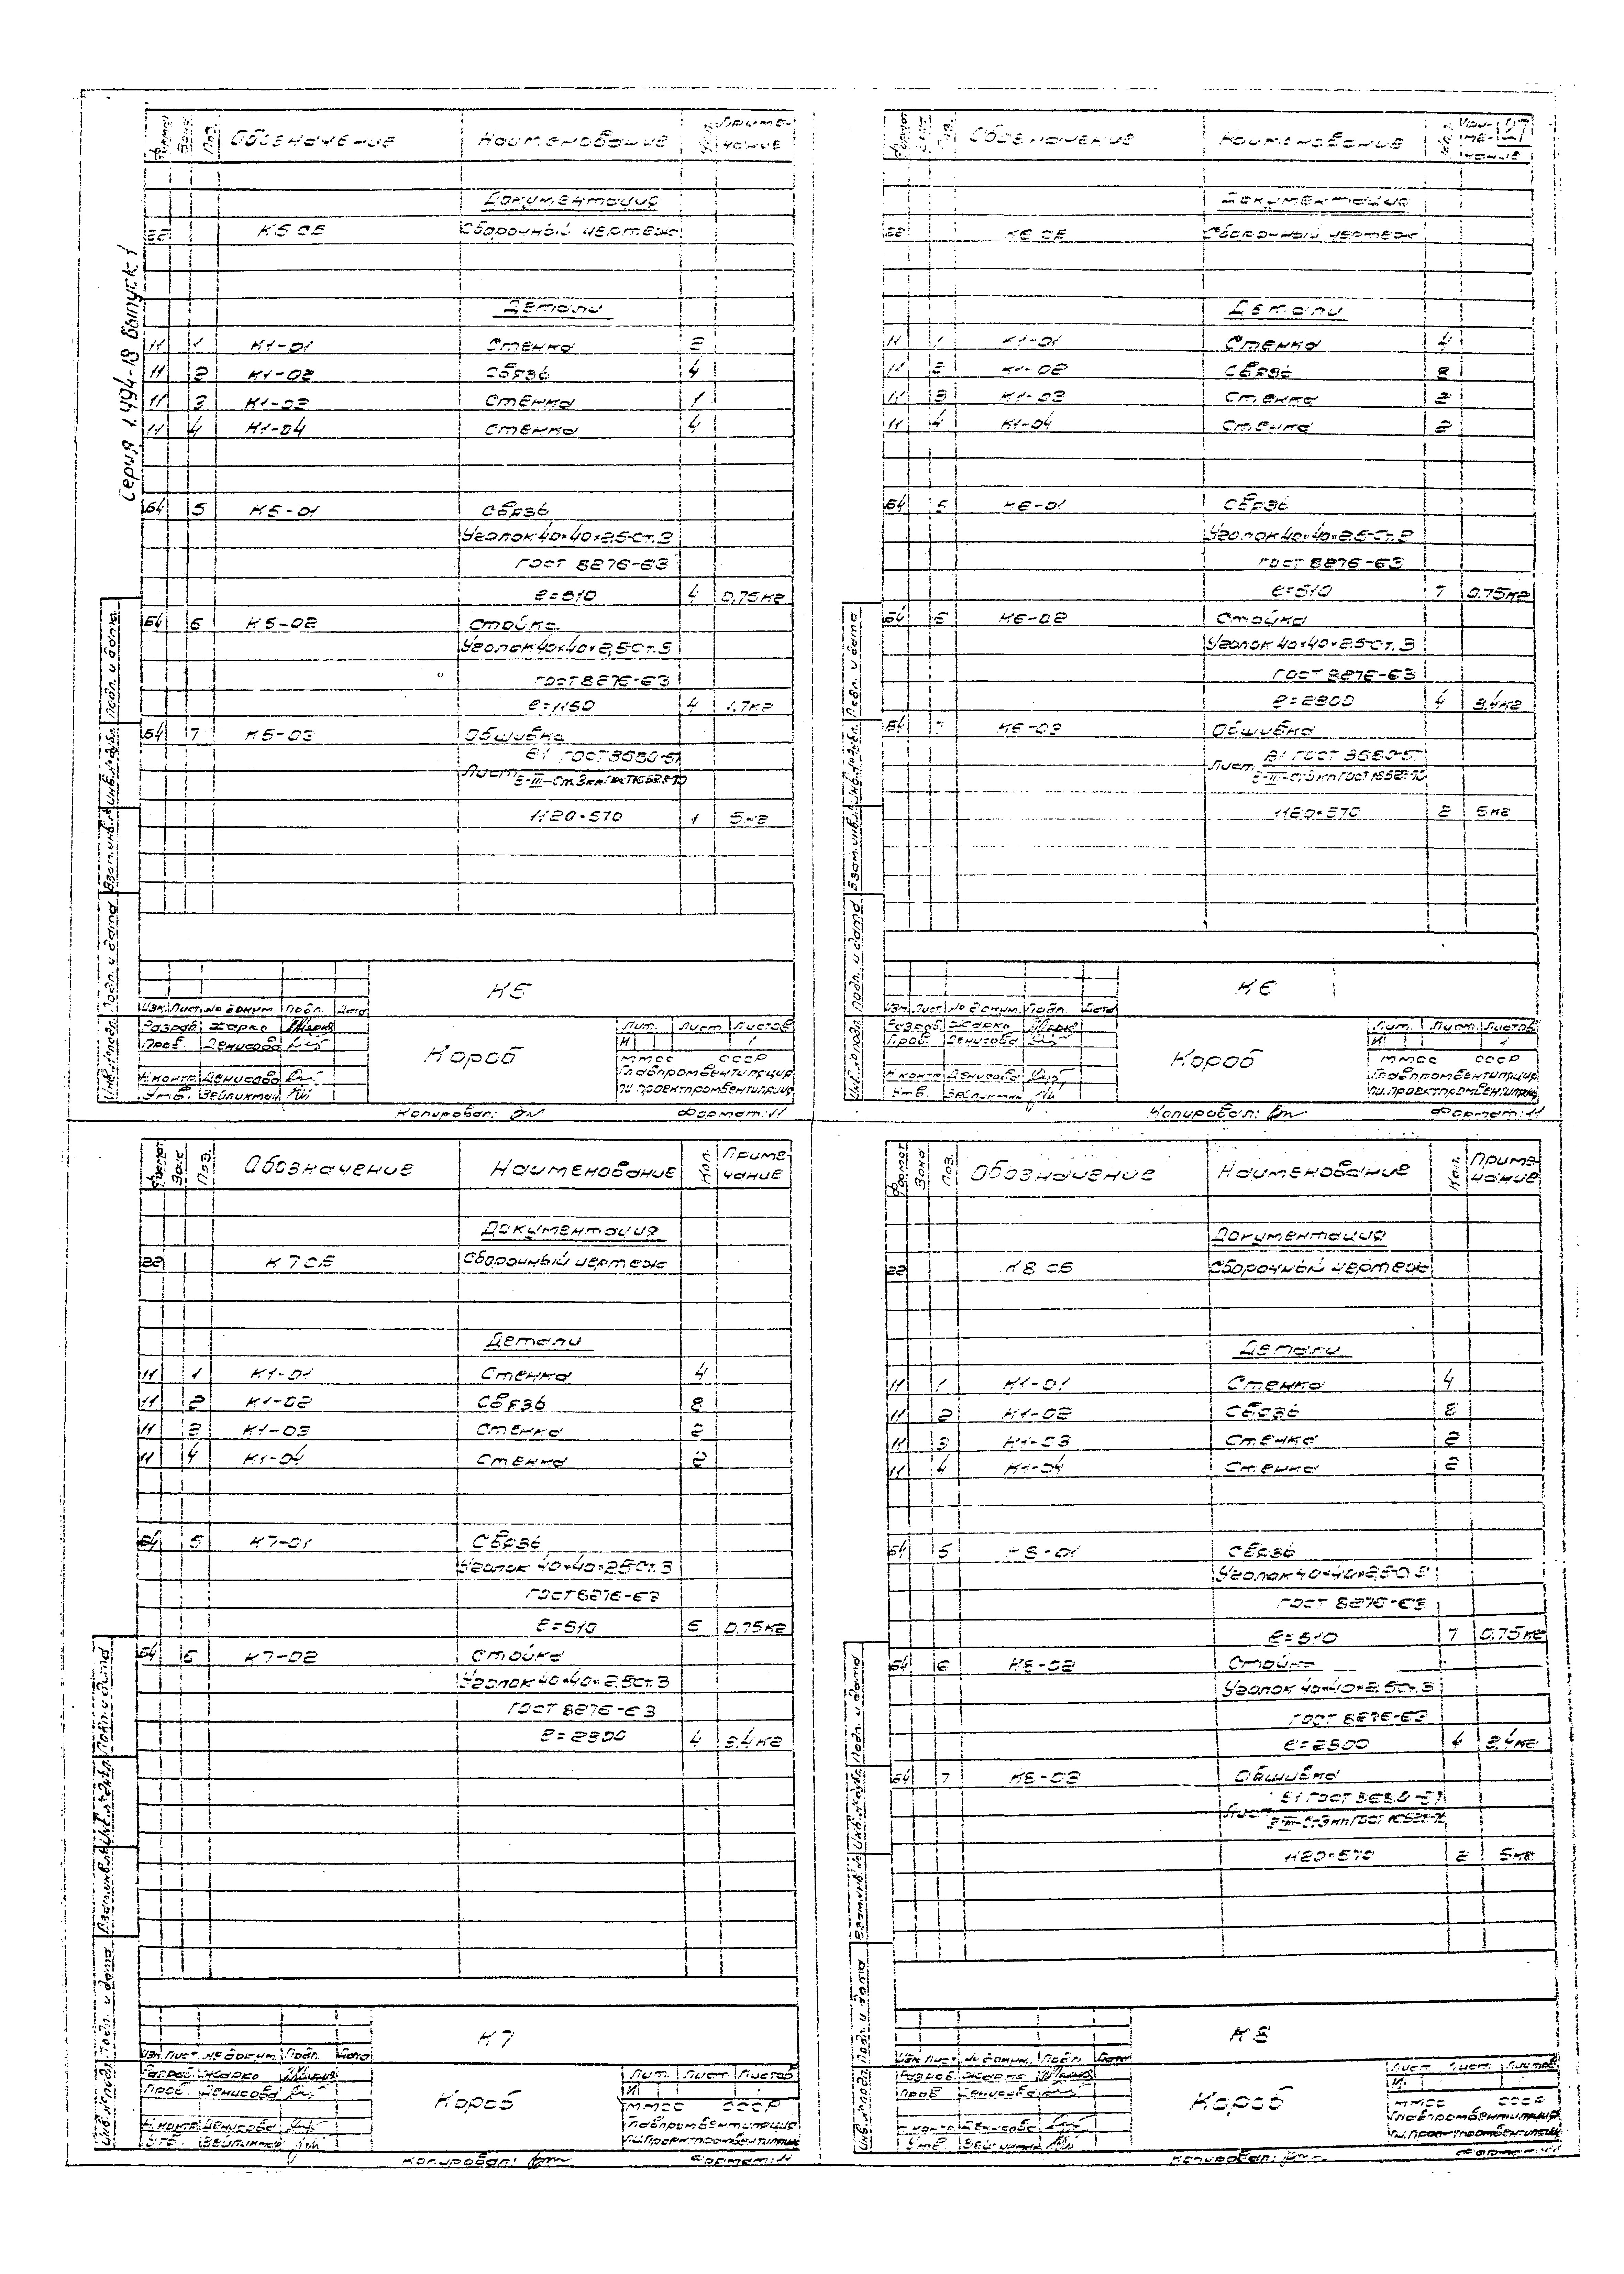 Серия 1.494-18 Выпуск 1
Формат Зона Поз. Обозначение Наименование Кол. Примечание
Документация
22 К5 СБ Сборочный чертеж
Детали
11 1 К1-01 Стенка 2
11 2 К1-02 Связь 4
11 3 К1-03 Стенка 1
11 4 К1-04 Стенка 4
Б4 5 К5-01 Связь
Уголок 40×40×2,5-Ст.3
ГОСТ 8276-63
ℓ=510 4 0,75кг
Б4 6 К5-02 Стойка
Уголок 40×40×2,5Ст.3
ГОСТ 8276-63
ℓ=1150 4 1,7кг
Б4 7 К5-03 Обшивка
Лист
1120×570 1 5кг
Подп. и дата
Инв.№ дубл.
Взам.инв.№
Подп. и дата
Инв.№ подл.
К5
Изм. Лист № докум. Подп. Дата
Разраб. Жарко
Пров. Денисова
Н.контр. Денисова
Утв.
Короб
Лит. Лист Листов
И 1
ММСС СССР
Главпромвентиляция
Копировал: Формат: 11
27
Формат Зона Поз. Обозначение Наименование Кол. Примечание
Документация
22 К6 СБ Сборочный чертеж
Детали
11 1 К1-01 Стенка 4
11 2 К1-02 Связь 8
11 3 К1-03 Стенка 2
11 4 К1-04 Стенка 2
Б4 5 К6-01 Связь
Уголок 40×40×2,5-Ст.3
ГОСТ 8276-63
ℓ=510 7 0,75кг
Б4 6 К6-02 Стойка
Уголок 40×40×2,5-Ст.3
ГОСТ 8276-63
ℓ=2300 4 3,4кг
Б4 7 К6-03 Обшивка
Лист
1120×570 2 5кг
Подп. и дата
Инв.№ дубл.
Взам.инв.№
Подп. и дата
Инв.№ подл.
К6
Изм. Лист № докум. Подп. Дата
Разраб. Жарко
Пров. Денисова
Н.контр. Денисова
Утв.
Короб
Лит. Лист Листов
И 1
ММСС СССР
Главпромвентиляция
Копировал: Формат: 11
Формат Зона Поз. Обозначение Наименование Кол. Примечание
Документация
22 К7 СБ Сборочный чертеж
Детали
11 1 К1-01 Стенка 4
11 2 К1-02 Связь 8
11 3 К1-03 Стенка 2
11 4 К1-04 Стенка 2
Б4 5 К7-01 Связь
Уголок 40×40×2,5Ст.3
ГОСТ 8276-63
ℓ=510 6 0,75кг
Б4 6 К7-02 Стойка
Уголок 40×40×2,5Ст.3
ГОСТ 8276-63
ℓ=2300 4 3,4кг
Подп. и дата
Инв.№ дубл.
Взам.инв.№
Подп. и дата
Инв.№ подл.
К7
Изм. Лист № докум. Подп. Дата
Разраб. Жарко
Пров. Денисова
Н.контр. Денисова
Утв.
Короб
Лит. Лист Листов
И
ММСС СССР
Главпромвентиляция
Копировал: Формат: 11
Формат Зона Поз. Обозначение Наименование Кол. Примечание
Документация
22 К8 СБ Сборочный чертеж
Детали
11 1 К1-01 Стенка 4
11 2 К1-02 Связь 8
11 3 К1-03 Стенка 2
11 4 К1-04 Стенка 2
Б4 5 К8-01 Связь
Уголок 40×40×2,5
ГОСТ 8276-63
ℓ=510 7 0,75кг
Б4 6 К8-02 Стойка
Уголок 40×40×2,5Ст.3
ГОСТ 8276-63
ℓ=2300 4 3,4кг
Б4 7 К8-03 Обшивка
Лист
1120×570 2 5кг
Подп. и дата
Инв.№ дубл.
Взам.инв.№
Подп. и дата
Инв.№ подл.
К8
Изм. Лист № докум. Подп. Дата
Разраб. Жарко
Пров. Денисова
Н.контр. Денисова
Утв.
Короб
Лист Лист. Листов
И
ММСС СССР
Главпромвентиляция
Копировал: Формат: 11